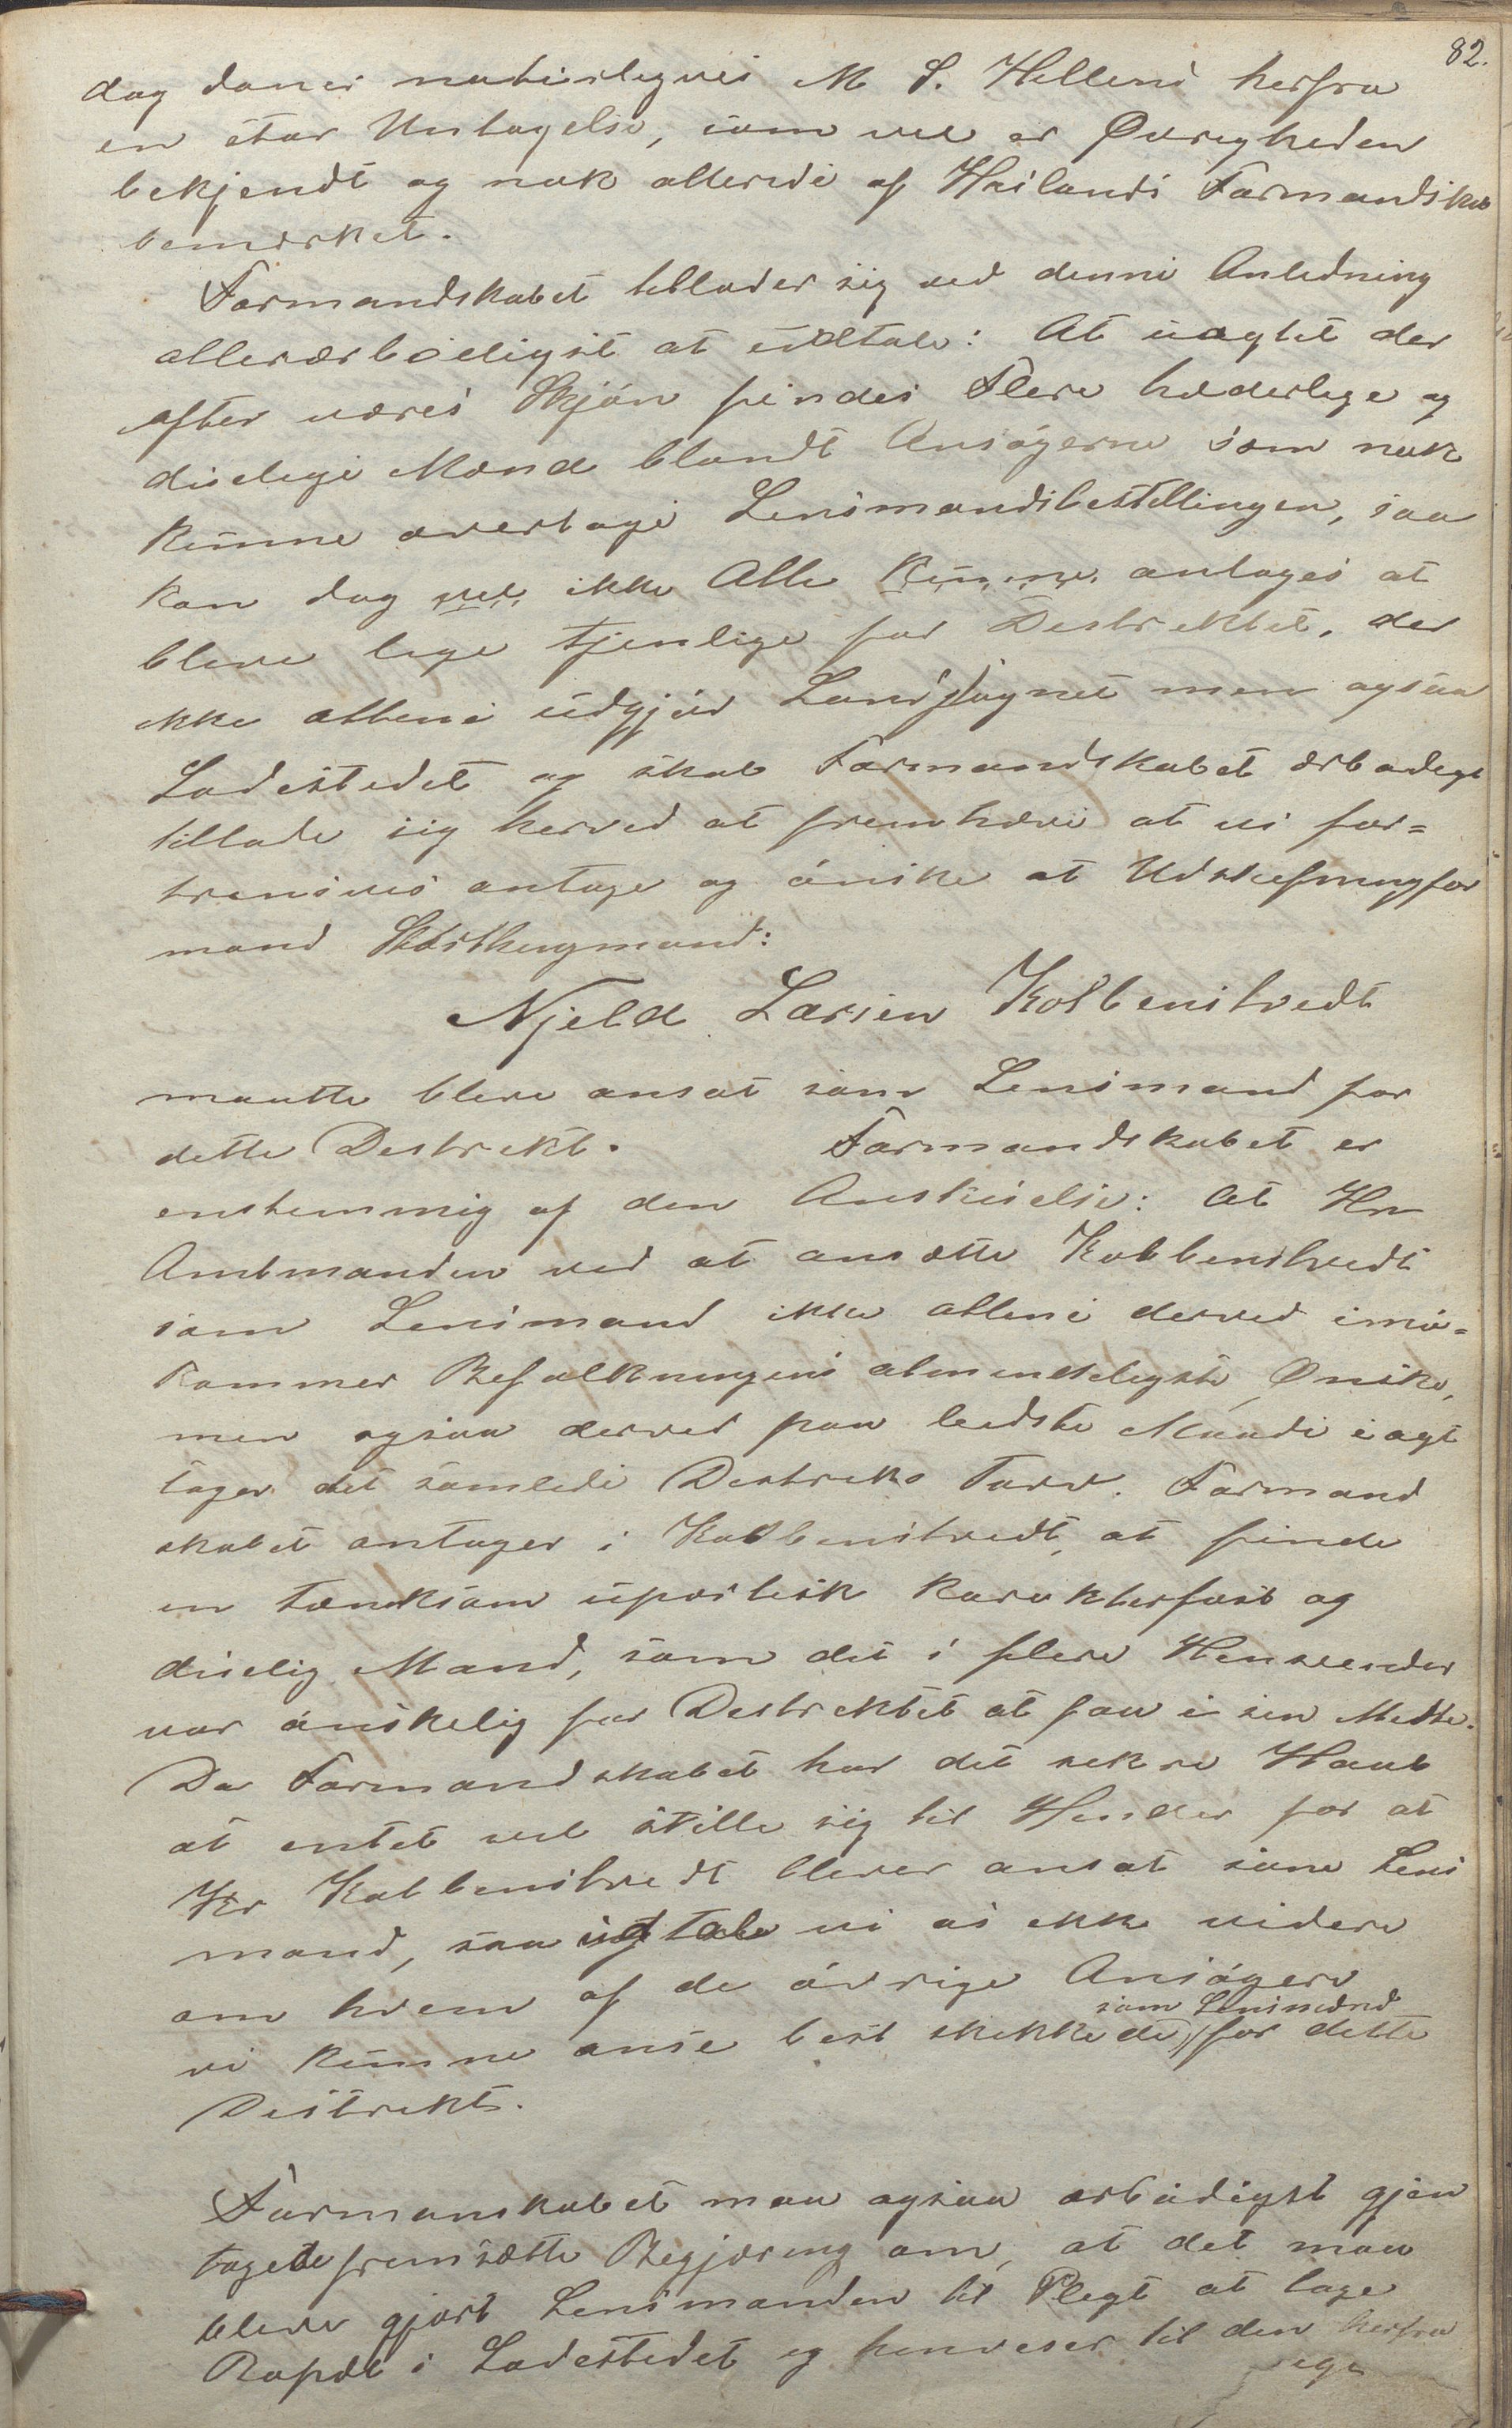 82.
dog daner naturligvis M S. Helland herfra
en stor Untagelse, som vel er Øvrigheden
bekjendt og nok allerede af Høilands Formandskab
bemærket.
Formandskabet tillader sig ved denne Anledning
allerærbødigst at udtale: At uagtet der
efter vores Skjøn findes Flere hæderlige og
duelige Mænd blandt Ansøgerne som nok
kunne overtage Lensmandsbestillingen, saa
kan dog vel ikke Alle kunne antages at
bleve lige tjenlige for Destrektet, der
ikke allene udgjør Landsognet men ogsaa
Ladestedet og skal Formandskabet ærbødigst
tillade sig herved at fremhæve at vi for=
trensvis antage og ønske at Udskifningsfor
mand Storthingmand:
Njeld Larsen Kolbenstvedt
maatte bleve ansat som Lensmand for
dette Destrekt. Formandskabet er
enstemmig af den Anskuelse: At Hr
Amtmanden ved at ansætte Kolbenstvedt
som Lensmand ikke allene derved imø=
kommer Befolkningens almindeligste Ønske,
men ogsaa derved paa bedste Maade iagt
tager det samlede Destreks Tarv. Formand
skabet antager i Kolbenstvedt, at finde
en tænksom upartisk Karakterfast og
duelig Mand, som det i flere Henseender
var ønskelig for Destrektet at faa i sin Midte.
Da Formandskabet har det sekre Haab
at entet vel stille sig til Hinder for at
Hr Kolbenstvedt blever ansat som Lens
mand, saa udtale vi os ikke videre
om hvem af de øvrige Ansøgere
som Lensmænd
vi kunne anse best skekkede for dette
Destrekt.
Formanskabet maa ogsaa ærbødigst gjen
tagede fremsætte Begjæring om, at det maa
bleve gjort Lensmanden til Plegt at tage
Bopæl i Ladestedet og henveser til den herfra